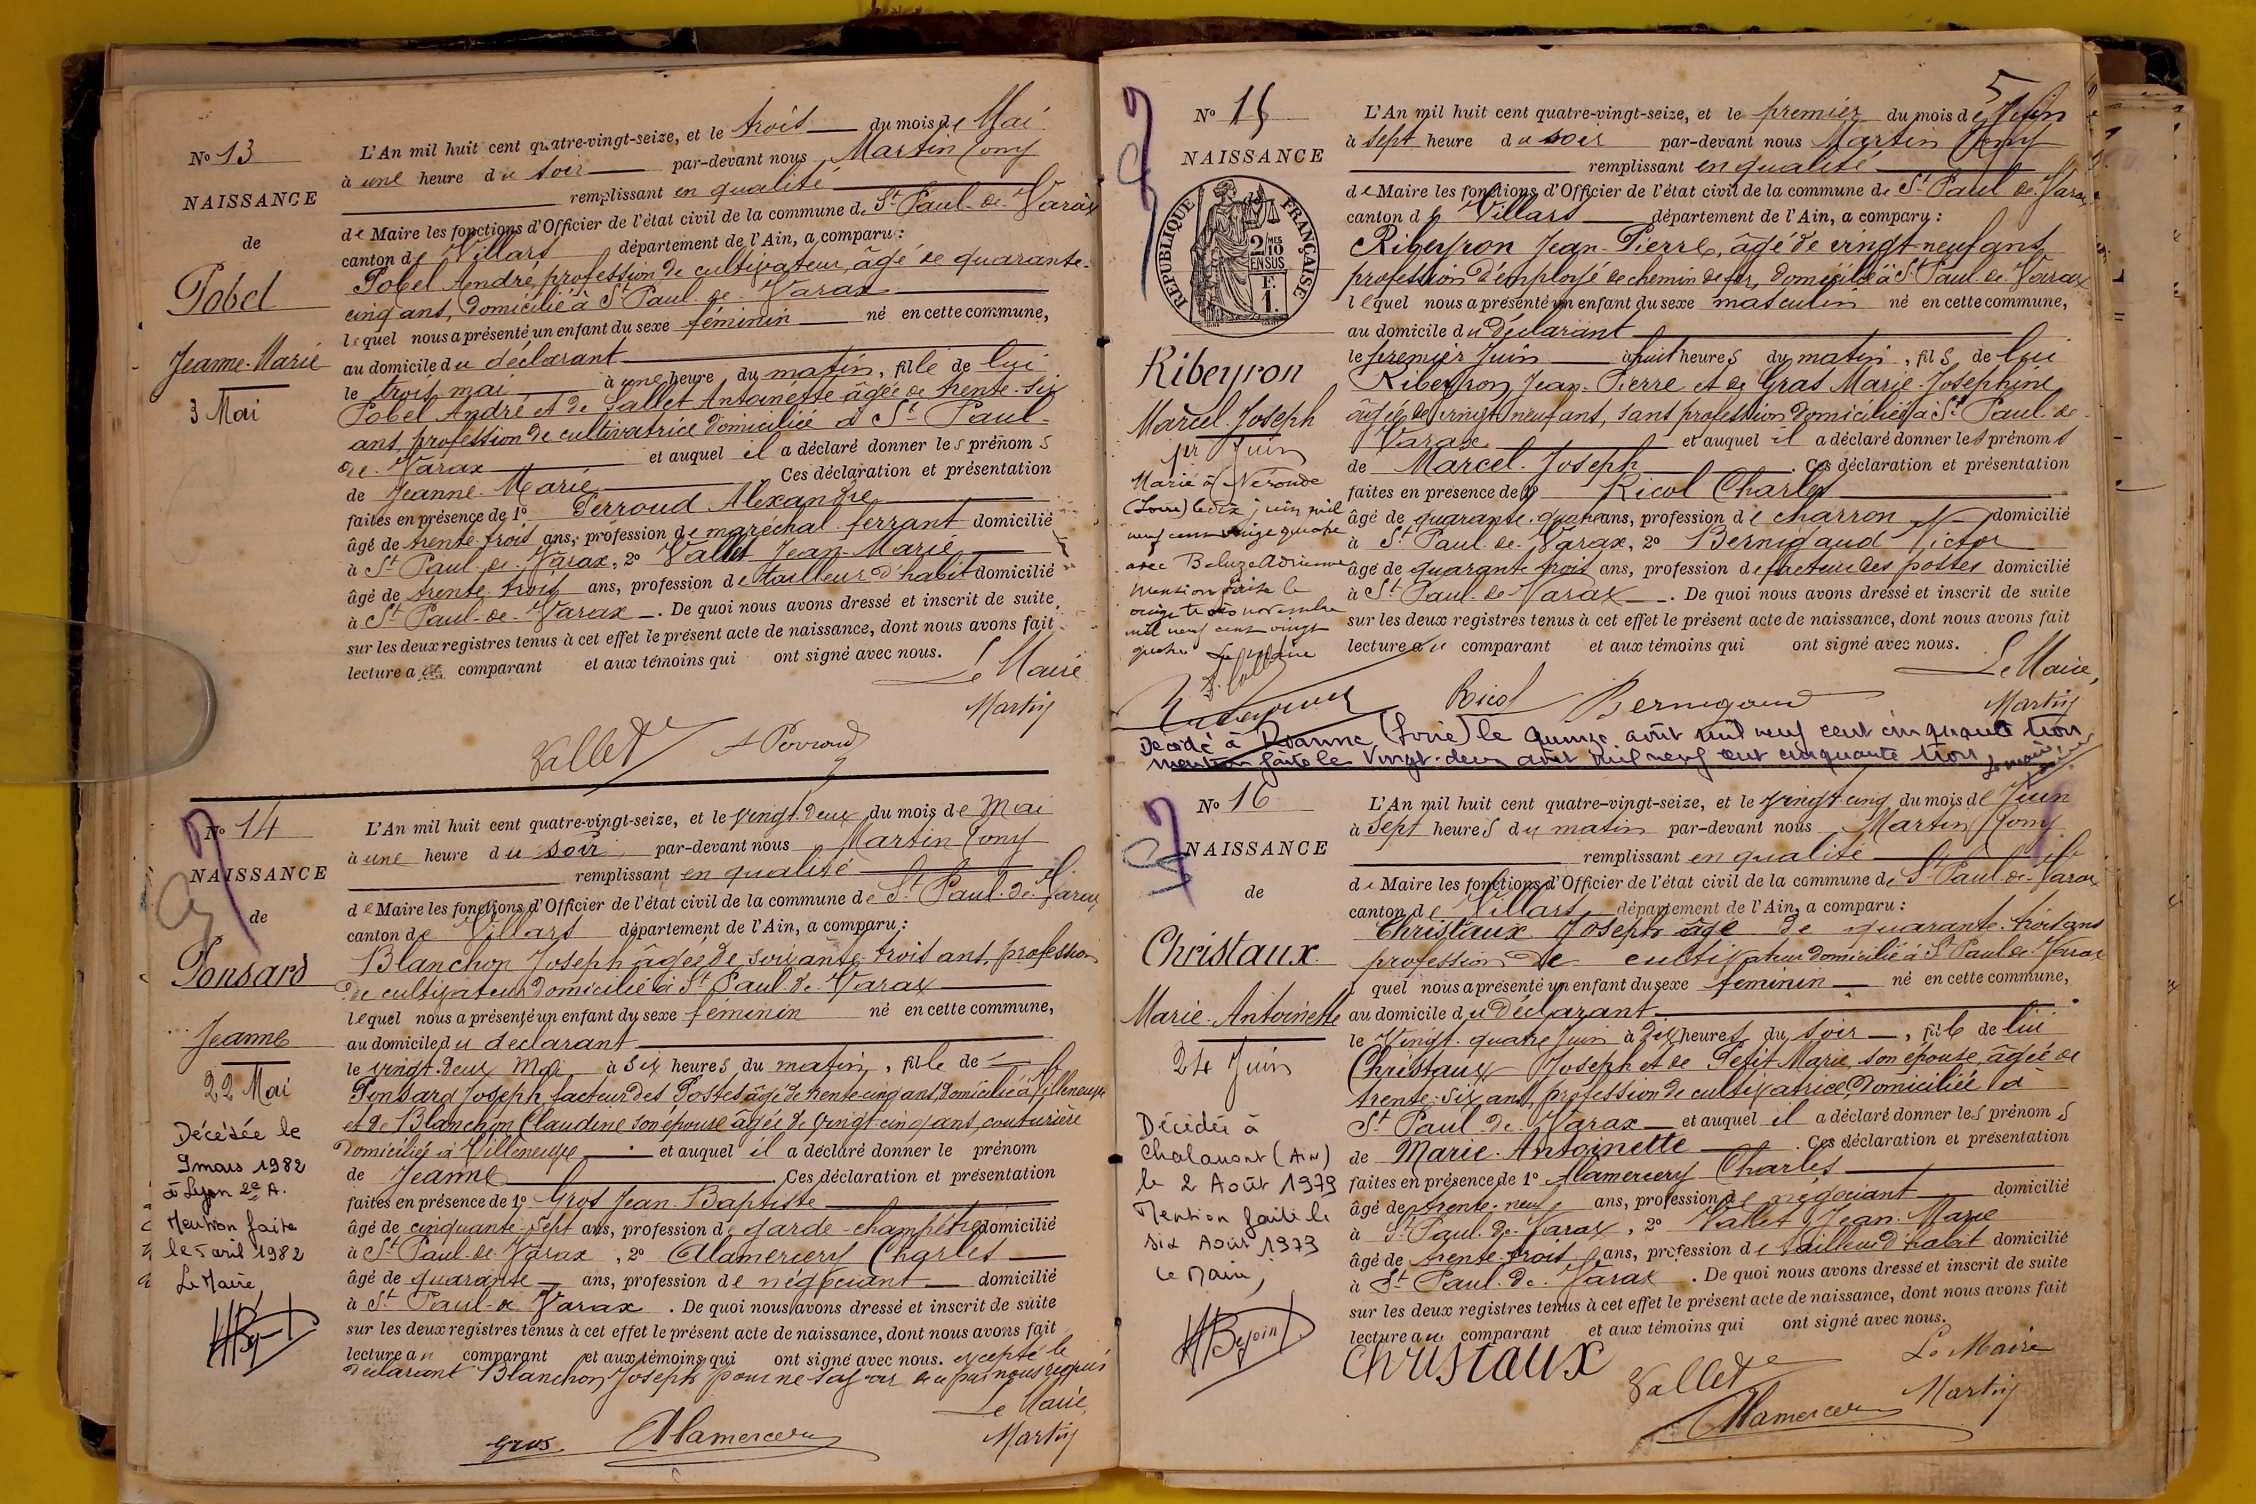 No 13
NAISSANCE
de
Pobel
Jeanne-Marie
3 Mai
L'An mil huit cent quatre-vingt-seize, et le trois du mois de Mai
à une heure du soir par-devant nous Martin Tony
remplissant en qualité
de Maire les fonctions d'Officier de l'état civil de la commune de St Paul-de-Varax
canton de Villars département de l'Ain, a comparu :
Pobel André, profession de cultivateur, âgé de quarante-
cinq ans, domicilié à St Paul-de-Varax
lequel nous a présenté un enfant du sexe féminin né en cette commune,
au domicile du déclarant
le trois mai à une heure du matin, fille de lui
Pobel André et de Sallet Antoinette âgée de trente-six
ans, profession de cultivatrice domiciliée à St Paul-
de-Varax et auquel il a déclaré donner les prénoms
de Jeanne-Marie Ces déclaration et présentation
faites en présence de 1o Perroud Alexandre
âgé de trente-trois ans, profession de maréchal-ferrant domicilié
à St Paul-de-Varax, 2o Vallet Jean-Marie
âgé de trente-trois ans, profession de tailleur d'habit domicilié
à St Paul-de-Varax. De quoi nous avons dressé et inscrit de suite
sur les deux registres tenus à cet effet le présent acte de naissance, dont nous avons fait
lecture au comparant et aux témoins qui ont signé avec nous.
Le Maire
Martin
Vallet A Perroud
No 14
NAISSANCE
de
Ponsard
Jeanne
22 Mai
Décédée le
9 mars 1982
à Lyon 2e A.
Mention faite
le 5 avril 1982
Le Maire,
L'An mil huit cent quatre-vingt-seize, et le vingt-deux du mois de Mai
à une heure du soir par-devant nous Martin Tony
remplissant en qualité
de Maire les fonctions d'Officier de l'état civil de la commune de St Paul-de-Varax
canton de Villars département de l'Ain, a comparu :
Blanchon Joseph âgée de soixante-trois ans, profession
de cultivateur domicilié à St Paul-de-Varax
lequel nous a présenté un enfant du sexe féminin né en cette commune,
au domicile du déclarant
le vingt-deux Mai à six heures du matin, fille de
Ponsard Joseph, facteur des Postes âgé de trente-cinq ans, domicilié à Villeneuve
et de Blanchon Claudine son épouse âgée de vingt-cinq ans, couturière
domiciliée à Villeneuve et auquel il a déclaré donner le prénom
de Jeanne Ces déclaration et présentation
faites en présence de 1o Gros Jean-Baptiste
âgé de cinquante-sept ans, profession de garde-champêtre domicilié
à St Paul-de-Varax, 2o Alamercery Charles
âgé de quarante ans, profession de négociant domicilié
à St Paul-de-Varax. De quoi nous avons dressé et inscrit de suite
sur les deux registres tenus à cet effet le présent acte de naissance, dont nous avons fait
lecture au comparant et aux témoins qui ont signé avec nous. excepté le
déclarant Blanchon Joseph pour ne savoir de ce par nous requis
Le Maire,
Gros Alamercery Martin
5
No 15
NAISSANCE
RÉPUBLIQUE FRANÇAISE
2 MES 10 EN SUS
F. 1.
Ribeyron
Marcel-Joseph
1er Juin
Marié à Néronde
(Loire) le dix juin mil
neuf cent vingt quatre
avec Beluze Adrienne
mention faite le
novembre
mil neuf cent vingt
quatre Le Maire
L'An mil huit cent quatre-vingt-seize, et le premier du mois de Juin
à sept heure du soir par-devant nous Martin Tony
remplissant en qualité
de Maire les fonctions d'Officier de l'état civil de la commune de St Paul-de-Varax
canton de Villars département de l'Ain, a comparu :
Ribeyron Jean-Pierre, âgé de vingt-neuf ans
profession d'employé de chemin de fer, domicilié à St Paul-de-Varax
lequel nous a présenté un enfant du sexe masculin né en cette commune,
au domicile du déclarant
le premier Juin à huit heures du matin, fils de lui
Ribeyron Jean-Pierre et de Gras Marie-Josephine
âgée de vingt-neuf ans, sans profession domiciliée à St Paul-de-
Varax et auquel il a déclaré donner les prénoms
de Marcel-Joseph. Ces déclaration et présentation
faites en présence de 1o Ricol Charles
âgé de quarante-quatre ans, profession de charron domicilié
à St Paul-de-Varax, 2o Bernigaud Victor
âgé de quarante-trois ans, profession de facteur des postes domicilié
à St Paul-de-Varax. De quoi nous avons dressé et inscrit de suite
sur les deux registres tenus à cet effet le présent acte de naissance, dont nous avons fait
lecture au comparant et aux témoins qui ont signé avec nous.
Le Maire,
Ribeyron Ricol Bernigaud Martin
Décédé à Roanne (Loire) le quinze août mil neuf cent cinquante trois
mention faite le vingt-deux août mil neuf cent cinquante trois Le maire
No 16
NAISSANCE
de
Christaux
Marie-Antoinette
24 Juin
Décédée à
Chalamont (Ain)
le 2 Août 1979
Mention faite le
six Août 1979
Le Maire,
HBejoint
L'An mil huit cent quatre-vingt-seize, et le vingt-cinq du mois de Juin
à sept heures du matin par-devant nous Martin Tony
remplissant en qualité
de Maire les fonctions d'Officier de l'état civil de la commune de St Paul-de-Varax
canton de Villars département de l'Ain, a comparu :
Christaux Joseph âgé de quarante-trois ans
profession de cultivateur domicilié à St Paul-de-Varax
lequel nous a présenté un enfant du sexe féminin né en cette commune,
au domicile du Déclarant
le vingt-quatre Juin à dix heures du soir, fille de lui
Christaux Joseph et de Petit Marie, son épouse, âgée de
trente-six ans, profession de cultivatrice, domiciliée à
St Paul-de-Varax et auquel il a déclaré donner les prénoms
de Marie-Antoinette. Ces déclaration et présentation
faites en présence de 1o Alamercery Charles
âgé de trente-neuf ans, profession de négociant domicilié
à St Paul-de-Varax, 2o Vallet Jean-Marie
âgé de trente-trois ans, profession de tailleur d'habit domicilié
à St Paul-de-Varax. De quoi nous avons dressé et inscrit de suite
sur les deux registres tenus à cet effet le présent acte de naissance, dont nous avons fait
lecture au comparant et aux témoins qui ont signé avec nous.
Christaux Vallet Le Maire
Alamercery Martin